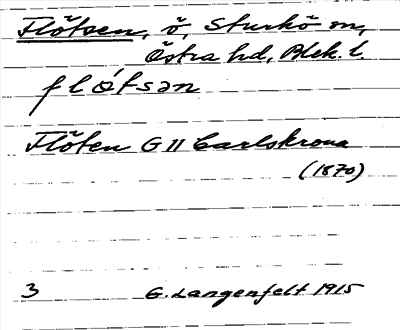 Flötsen, ö, Sturkö sn,
Östra hd, Blek. l.
flø̀tsən
Flöten G II Carlskrona
(1870)
3 G. Langenfelt 1915